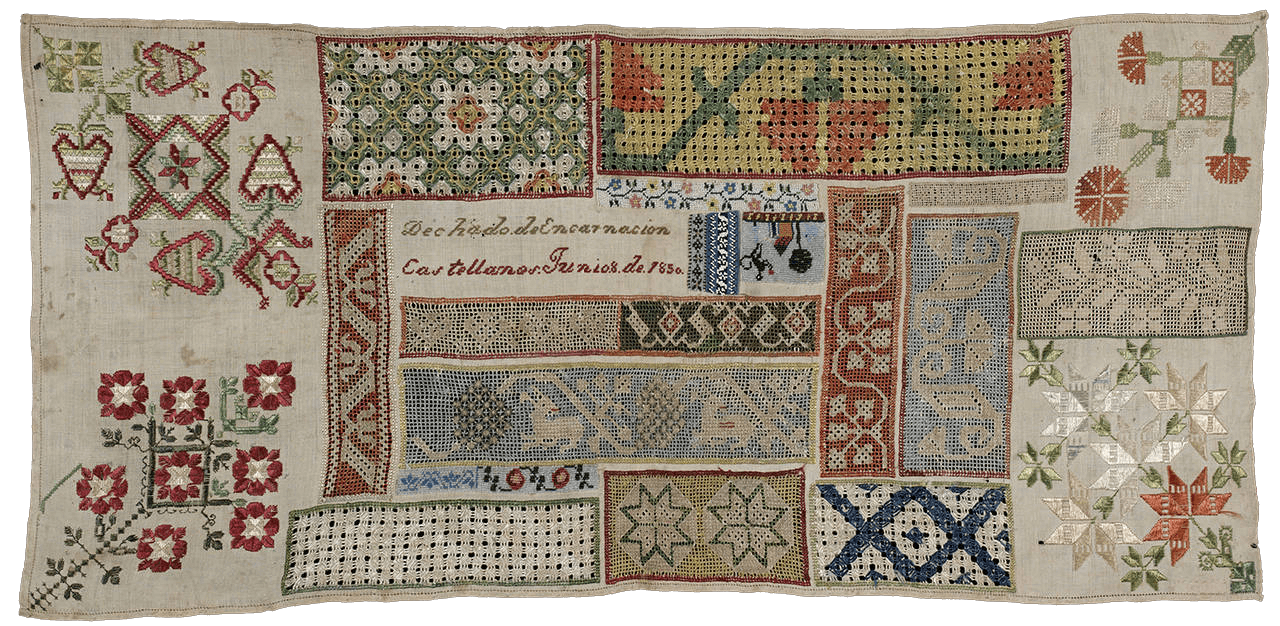 Dechado.de Encarnacion
Castellanos.Junio 8.de.1850.